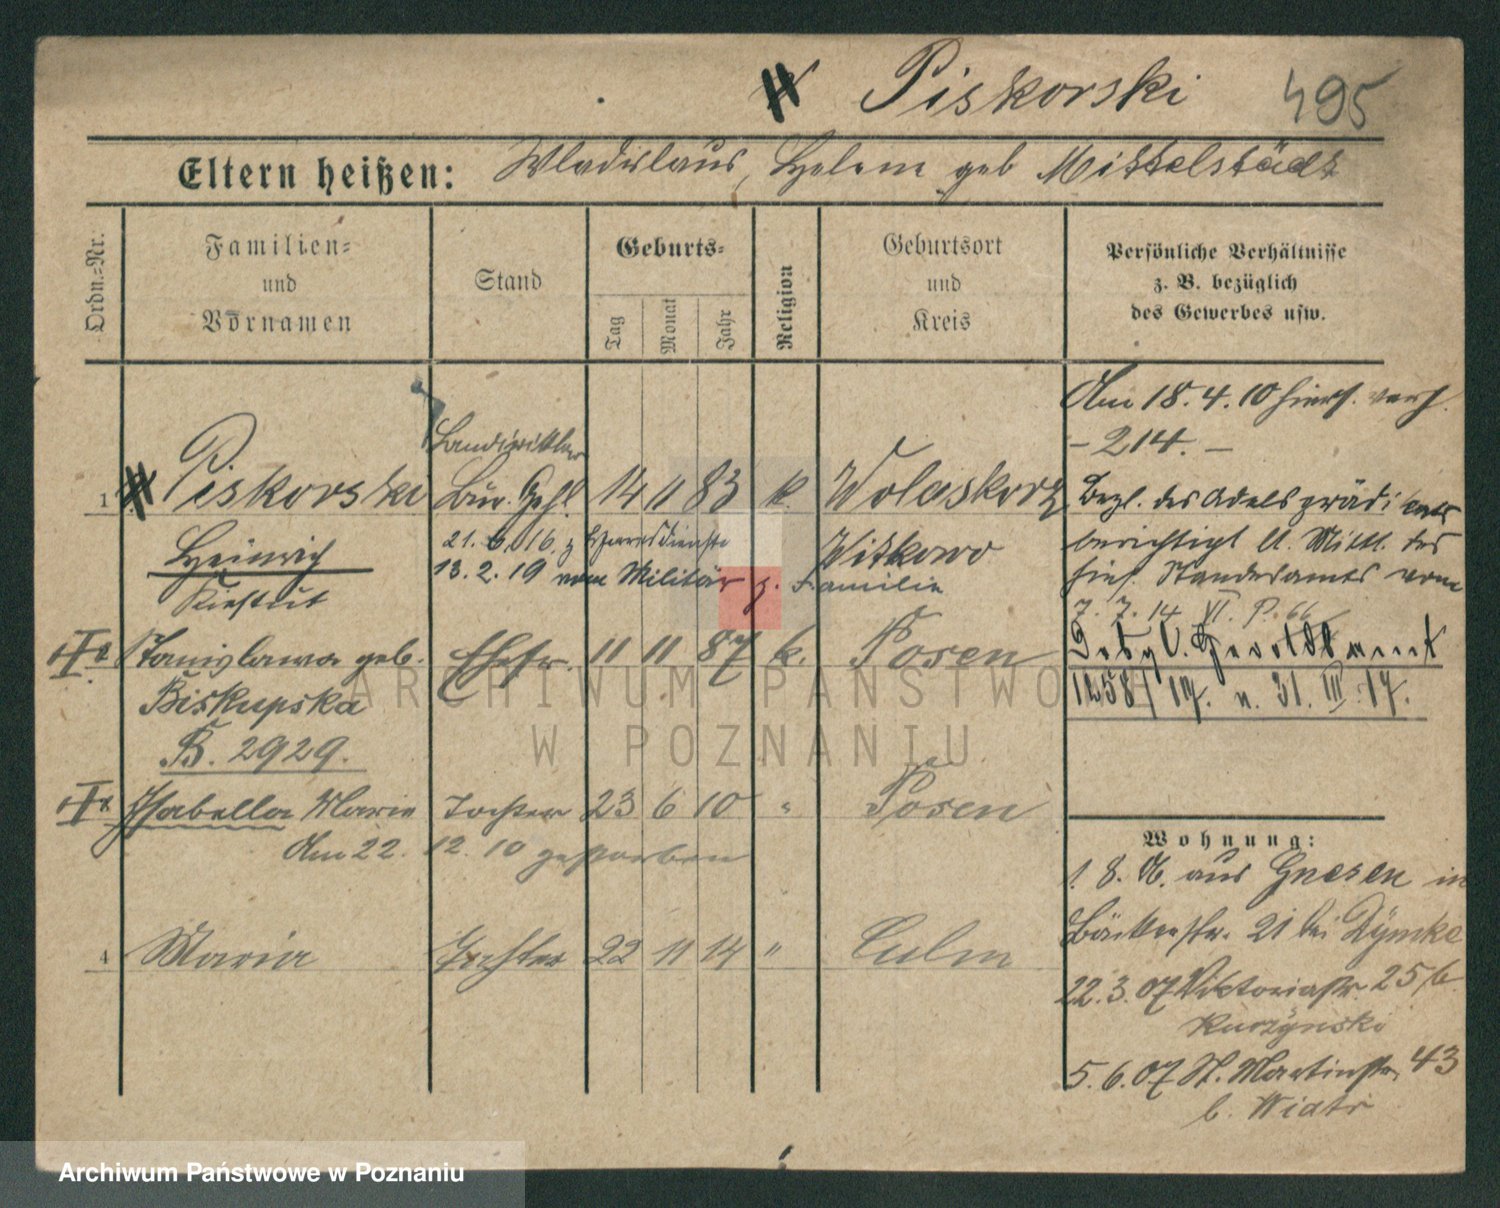 Piskorski 495
Eltern heißen: Wladislaus, Helene geb Mittelstädt
Ordn.-Nr.
Familien-
und
Vornamen
Stand
Geburts-
Tag
Monat
Jahr
Religion
Geburtsort
und
Kreis
Persönliche Verhältnisse
z. B. bezüglich
des Gewerbes usw.
Am 18.4.10 hiers. verh.
- 214. -
Landwirtther
1 Piskorski Bür. Geh. 14 11 83 k. Wolaskorz
Heinrich
Kiestut
Witkowo
21. 6. 16. z Heeresdienste
13. 2. 19 vom Militär z. Familie
Bezl. des Adelsprädikats
berichtigt lt. Mittl. des
hies. Standesamts vom
7. 7. 14 VI. P. 66
Stanislawa geb. Ehefr. 11 11 87 k. Posen
Biskupska
B. 2929.
Heroldsamt
1258/17. v. 31. III. 17.
Isabella Marie Tochter 23 6 10 " Posen
Am 22. 12. 10 gestorben
4 Maria Tochter 22 11 14 " Culm
Wohnung:
1. 8. 06. aus Gnesen in
Bäckerstr. 21 bei Dymke
22.3.07 Viktoriastr. 25 b.
Kurzynski
5.6.07 St. Martinstr. 43
b. Wiatr
ARCHIWUM PAŃSTWOWE
W POZNANIU
Archiwum Państwowe w Poznaniu